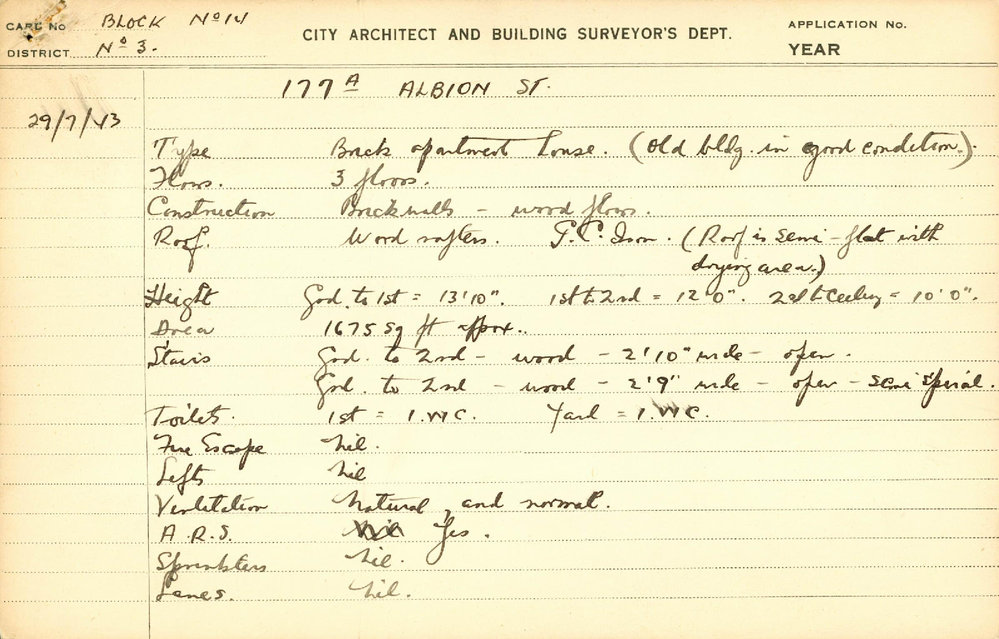 CARD No BLOCK No 14
DISTRICT No 3.
CITY ARCHITECT AND BUILDING SURVEYOR'S DEPT.
APPLICATION No.
YEAR
177A ALBION ST.
29/7/43
Type Brick apartment house. (Old bldg. in good condition.)
Floors. 3 floors.
Construction Brick walls - wood floors.
Roof. Wood rafters. G.C. Iron. (Roof is semi-flat with
drying area.)
Height Grd. to 1st = 13'10". 1st to 2nd = 12'0". 2nd to Ceiling = 10'0".
Area 1675 sq ft approx.
Stairs Grd. to 2nd - wood - 2'10" wide - open.
Grd. to 2nd - wood - 2'9" wide - open - semi spiral.
Toilets. 1st = 1.W.C. Yard = 1.W.C.
Fire Escape Nil.
Lifts Nil
Ventilation Natural and normal.
A.R.S. Nil Yes.
Sprinklers Nil.
Lanes. Nil.